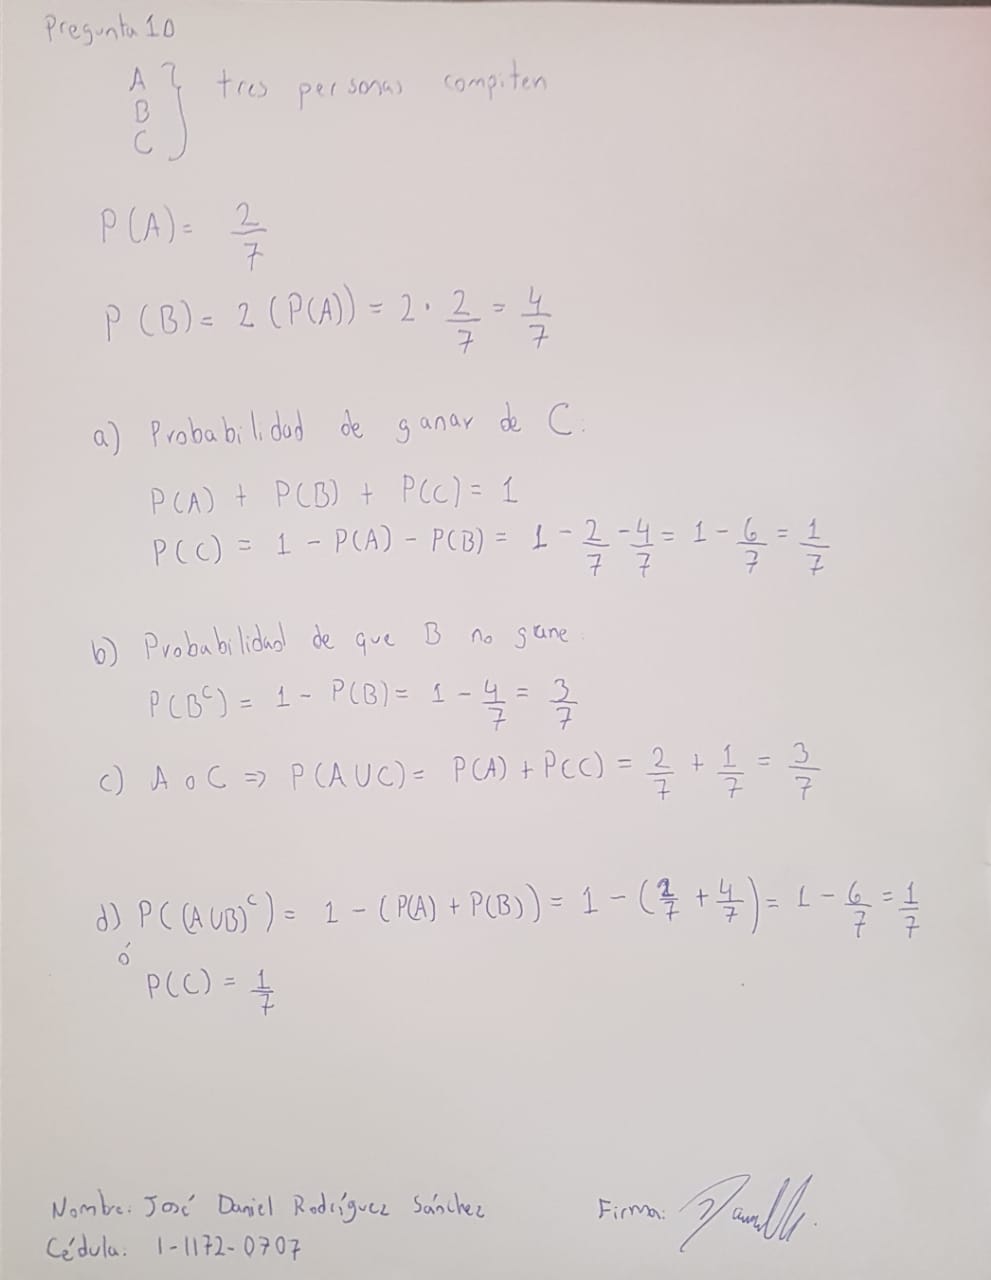 Pregunta 10
A
B
C
} tres personas compiten
P(A) = 2/7
P(B) = 2(P(A)) = 2 · 2/7 = 4/7
a) Probabilidad de ganar de C:
P(A) + P(B) + P(C) = 1
P(C) = 1 - P(A) - P(B) = 1 - 2/7 - 4/7 = 1 - 6/7 = 1/7
b) Probabilidad de que B no gane.
P(Bᶜ) = 1 - P(B) = 1 - 4/7 = 3/7
c) A o C ⇒ P(A∪C) = P(A) + P(C) = 2/7 + 1/7 = 3/7
d) P((A∪B)ᶜ) = 1 - (P(A) + P(B)) = 1 - (2/7 + 4/7) = 1 - 6/7 = 1/7
ó
P(C) = 1/7
Nombre: José Daniel Rodríguez Sánchez Firma:
Cédula: 1-1172-0707